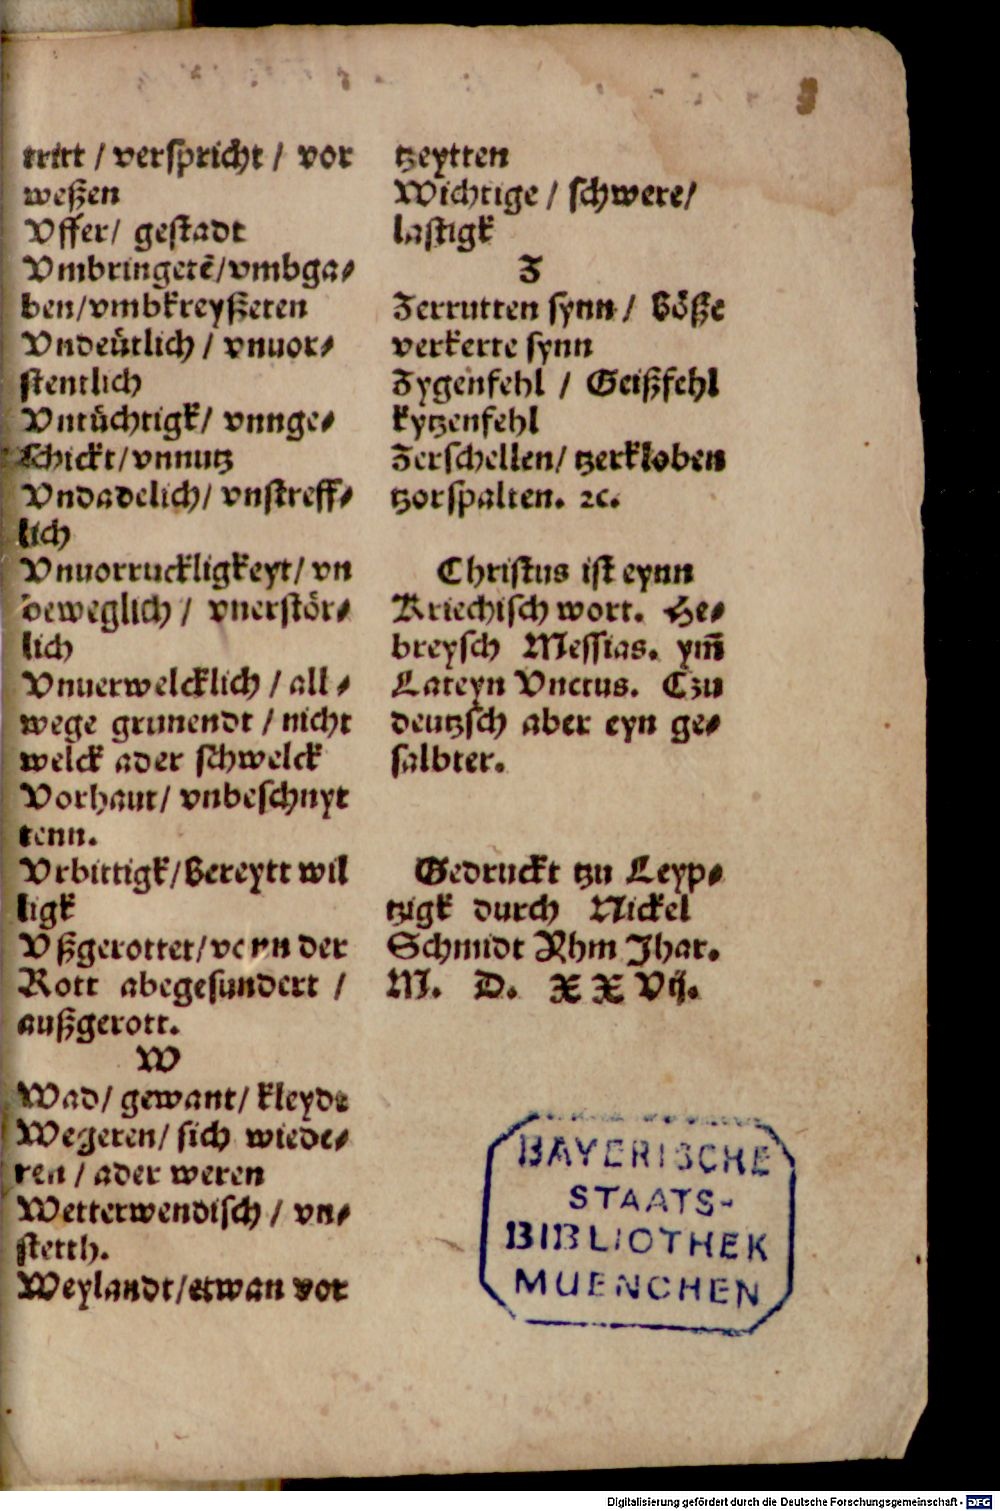 tritt / verspricht / vor
weßen
Vffer/ gestadt
Vmbringetē/vmbga⸗
ben/vmbkreyßeten
Vndeütlich / vnuor⸗
stentlich
Vntüchtigk/ vnnge⸗
schickt/vnnutz
Vndadelich/ vnstreff⸗
lich
Vnuorruckligkeyt/ vn
beweglich / vnerstör⸗
lich
Vnuerwelcklich / all⸗
wege grunendt / nicht
welck ader schwelck
Vorhaut/ vnbeschnyt
tenn.
Vrbittigk/Bereytt wil
ligk
Vßgerottet/vonn der
Rott abegesundert /
außgerott.
W
Wad/ gewant/ kleyde
Wegeren/ sich wiede⸗
ren / ader weren
Wetterwendisch / vn⸗
stetth.
Weylandt/etwan vor
tzeytten
Wichtige / schwere/
lastigk
Z
Zerrutten synn / Böße
verkerte synn
Zygenfehl / Geißfehl
kytzenfehl
Zerschellen/ tzerkloben
tzorspalten. ꝛc.
Christus ist eynn
Kriechisch wort. He⸗
breysch Messias. ym̄
Lateyn Vnctus. Czu
deutzsch aber eyn ge⸗
salbter.
Gedruckt tzu Leyp⸗
tzigk durch Nickel
Schmidt Yhm Jhar.
M. D. XX Vij.
BAYERISCHE
STAATS-
BIBLIOTHEK
MUENCHEN
Digitalisierung gefördert durch die Deutsche Forschungsgemeinschaft - DFG